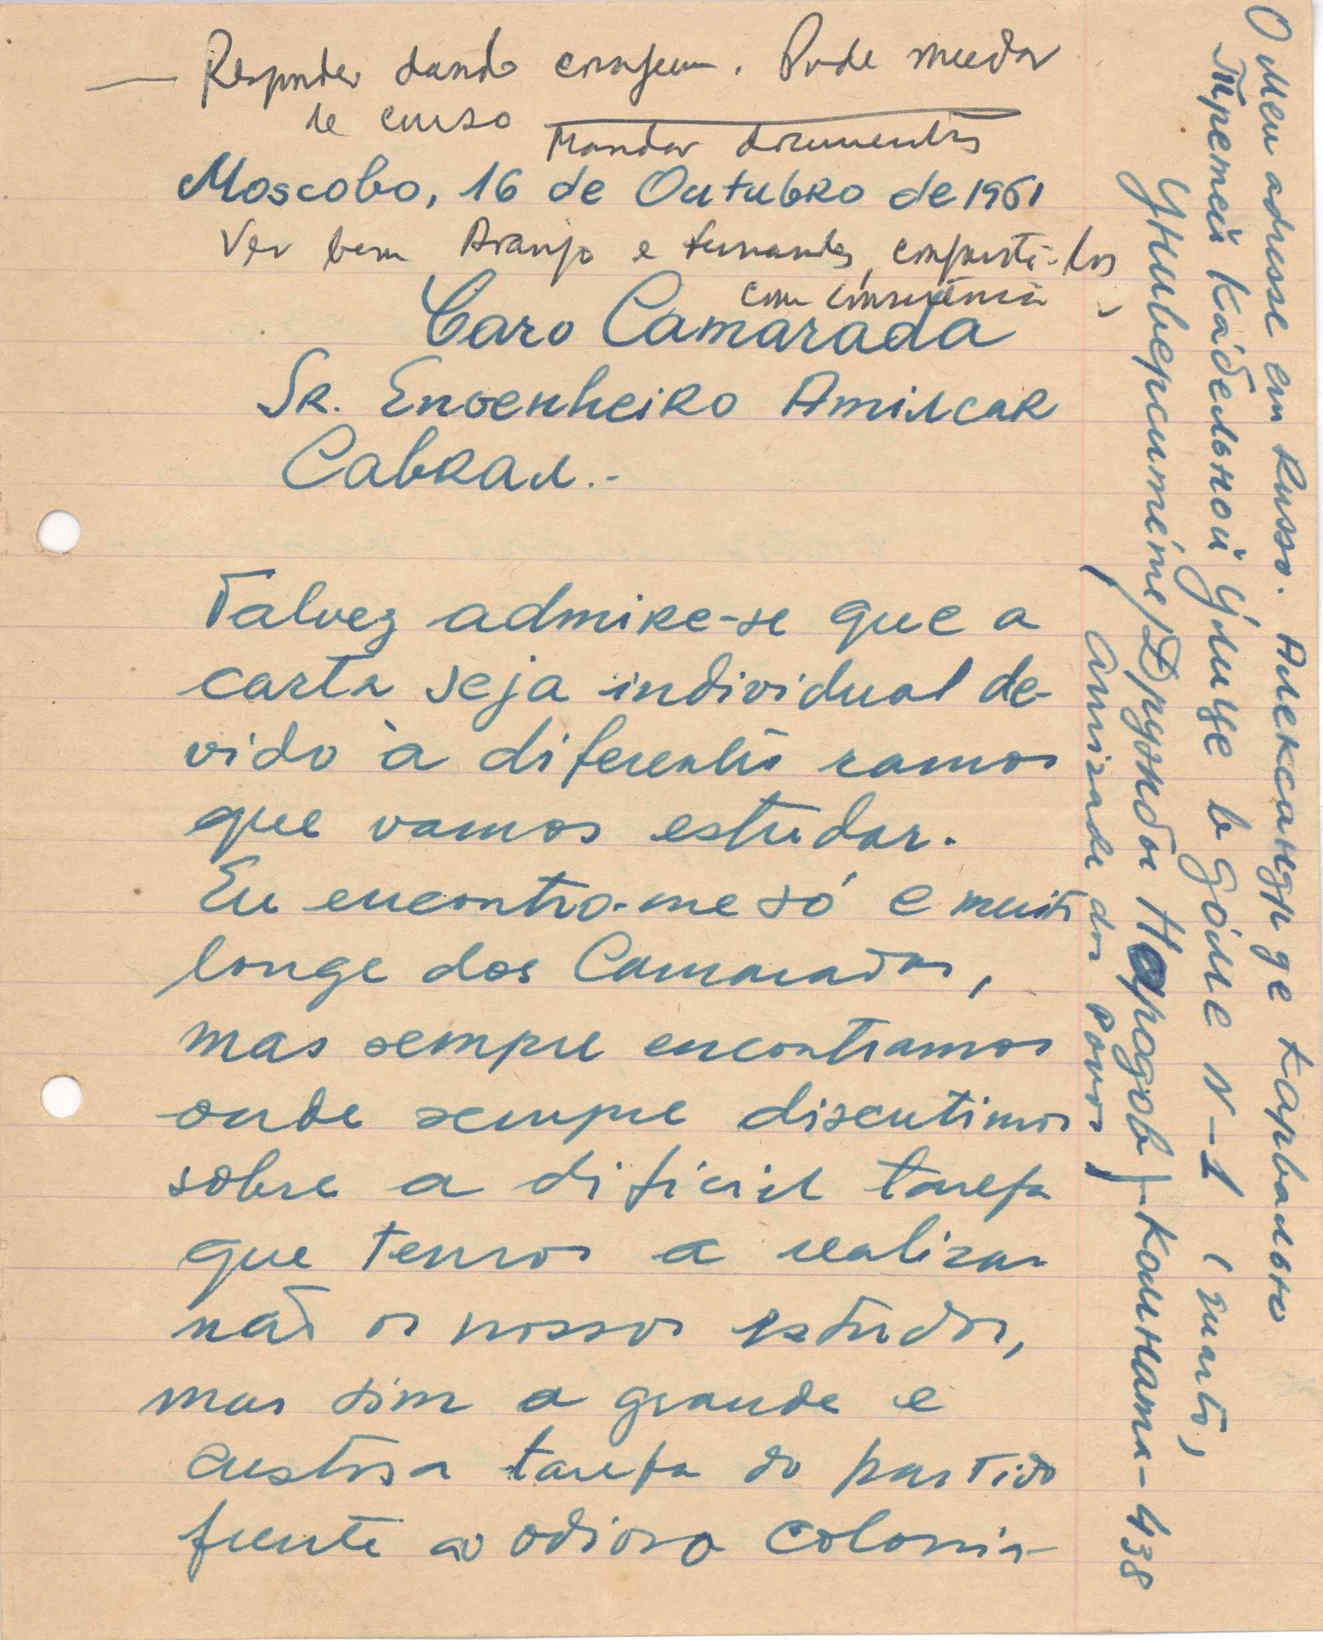 — Responder dando coragem. Pode mudar
de curso
Mandar documentos
Moscovo, 16 de Outubro de 1961
Ver bem Araujo e Fernandes, comportá-los
com consciência
Caro Camarada
SR. Engenheiro Amilcar
Cabral.-
Talvez admire-se que a
carta seja individual de-
vido à diferentes ramos
que vamos estudar.
Eu encontro-me só e muito
longe dos Camaradas,
mas sempre encontramos
onde sempre discutimos
sobre a dificil tarefa
que temos a realizar
não os nossos estudos,
mas sim a grande e
custosa tarefa do partido
frente ao odioso colonia-
O meu adresse em Russo. Александр де Карвальо
Третей Кабельной улице в доме N-1 (quarto,
Университете/Дружбы Народов/-Комната-438
/ amizade dos povos /